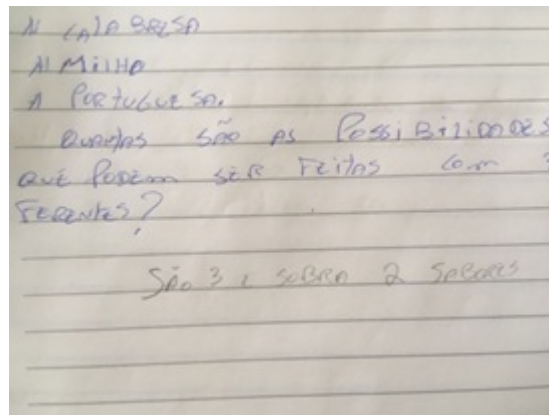 N CALABRESA
N MILHO
N PORTUGUESA.
QUANTAS SÃO AS POSSIBILIDADES
QUE PODEM SER FEITAS COM
FERENTES?
SÃO 3 E SOBRA 2 SABORES